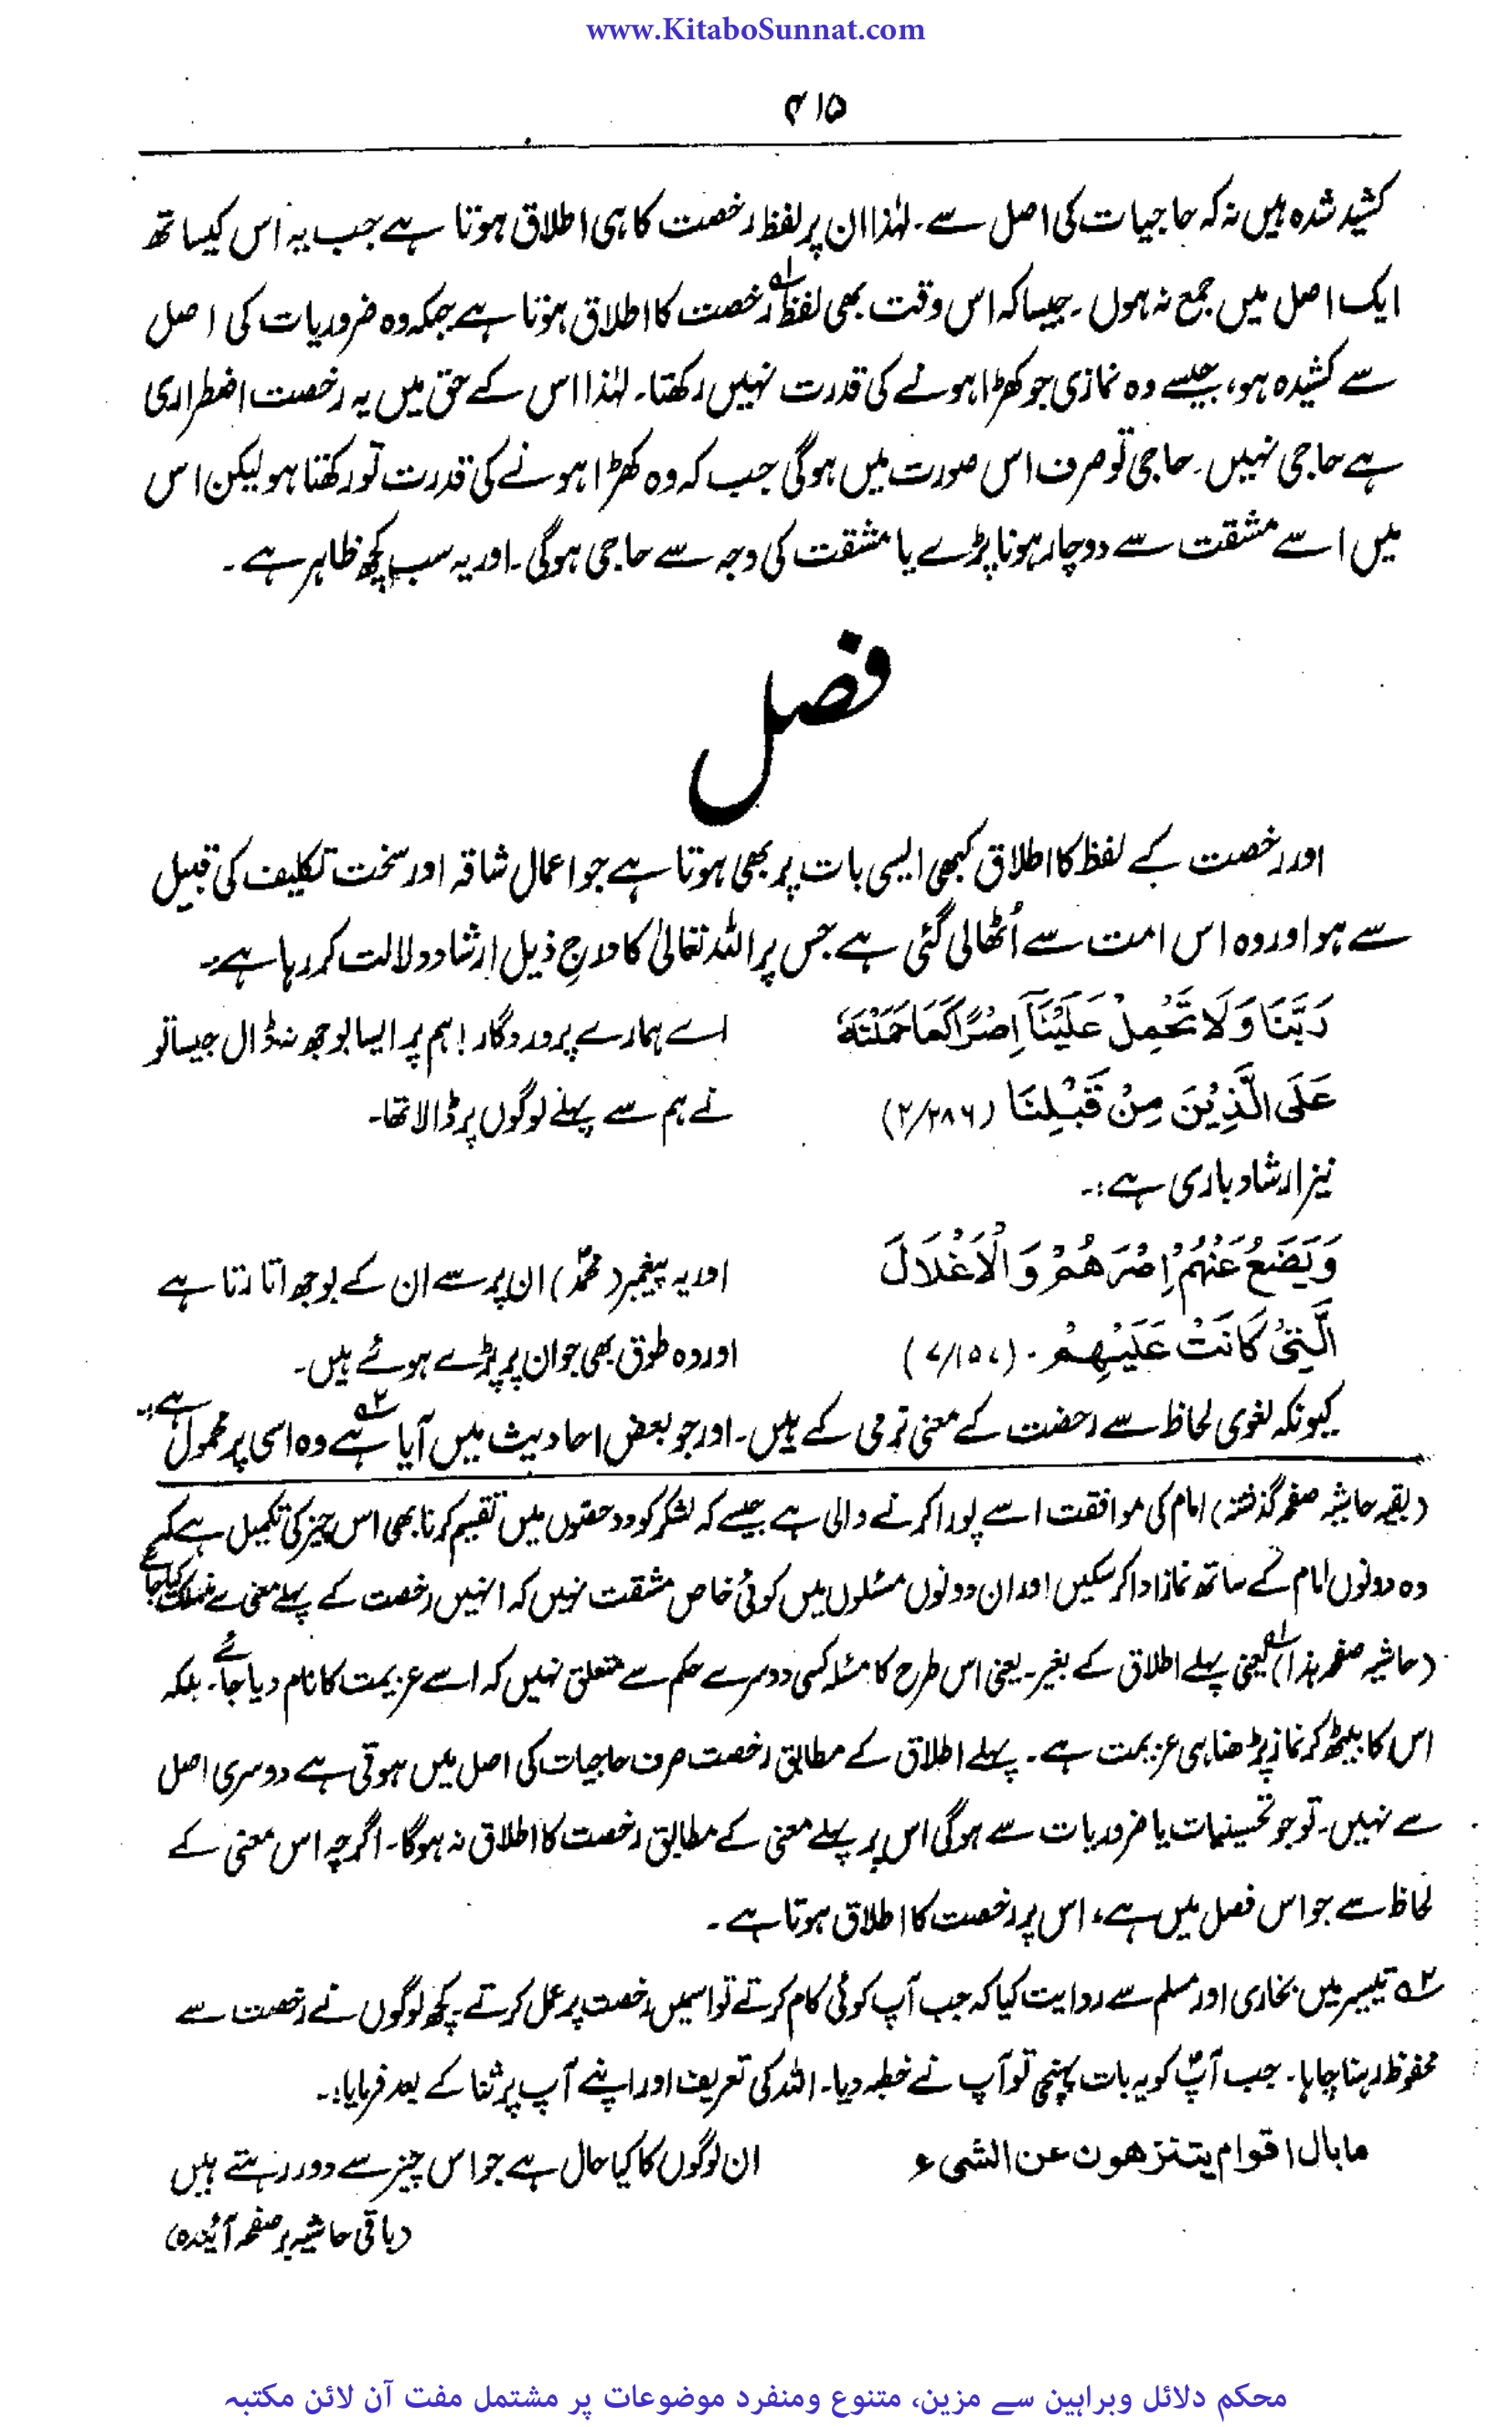 www.KitaboSunnat.com
۴۱۵
کشید شدہ ہیں نہ کہ حاجیات کی اصل سے۔ لہٰذا ان پر لفظ رخصت کا ہی اطلاق ہوتا ہے جب یہ اس کیساتھ
ایک اصل میں جمع نہ ہوں۔ جیسا کہ اس وقت بھی لفظ رخصت لہ کا اطلاق ہوتا ہے جبکہ وہ ضروریات کی اصل
سے کشیدہ ہو، جیسے وہ نمازی جو کھڑا ہونے کی قدرت نہیں رکھتا۔ لہٰذا اس کے حق میں یہ رخصت اضطراری
ہے حاجی نہیں۔ حاجی تو صرف اس صورت میں ہوگی جب کہ وہ کھڑا ہونے کی قدرت تو رکھتا ہو لیکن اس
میں اسے مشقت سے دوچار ہونا پڑے یا مشقت کی وجہ سے حاجی ہوگی۔ اور یہ سب کچھ ظاہر ہے۔
فصل
اور رخصت کے لفظ کا اطلاق کبھی ایسی بات پر بھی ہوتا ہے جو اعمال شاقہ اور سخت تکلیف کی قبیل
سے ہو اور وہ اس امت سے اُٹھا لی گئی ہے جس پر اللہ تعالیٰ کا درجِ ذیل ارشاد دلالت کر رہا ہے:۔
رَبَّنَا وَلَا تَحْمِلْ عَلَيْنَآ اِصْرًا كَمَا حَمَلْتَهٗ
اے ہمارے پروردگار! ہم پر ایسا بوجھ نہ ڈال جیسا تو
عَلَى الَّذِيْنَ مِنْ قَبْلِنَا (۲/۲۸۶)
نے ہم سے پہلے لوگوں پر ڈالا تھا۔
نیز ارشاد باری ہے:۔
وَيَضَعُ عَنْهُمْ اِصْرَهُمْ وَالْاَغْلَالَ
اور یہ پیغمبر (محمدؐ) ان پر سے ان کے بوجھ اتارتا ہے
الَّتِيْ كَانَتْ عَلَيْهِمْ۔ (۷/۱۵۷)
اور وہ طوق بھی جو ان پر پڑے ہوئے ہیں۔
کیونکہ لغوی لحاظ سے رخصت کے معنی نرمی کے ہیں۔ اور جو بعض احادیث میں آیا ۲ہ ہے وہ اسی پر محمول ہے:۔
(بقیہ حاشیہ صفحہ گذشتہ) امام کی موافقت اسے پورا کرنے والی ہے جیسے کہ لشکر کو دو حصّوں میں تقسیم کرنا بھی اس چیز کی تکمیل ہے کہ
وہ دونوں امام کے ساتھ نماز ادا کر سکیں اور ان دونوں مسئلوں میں کوئی خاص مشقت نہیں کہ انہیں رخصت کے پہلے معنی سے منسلک کیا جائے
(حاشیہ صفحہ ہذا) لہ یعنی پہلے اطلاق کے بغیر۔ یعنی اس طرح کا مسئلہ کسی دوسرے حکم سے متعلق نہیں کہ اسے عزیمت کا نام دیا جائے۔ بلکہ
اس کا بیٹھ کر نماز پڑھنا ہی عزیمت ہے۔ پہلے اطلاق کے مطابق رخصت صرف حاجیات کی اصل میں ہوتی ہے دوسری اصل
سے نہیں۔ تو جو تحسینیات یا ضروریات سے ہوگی اس پر پہلے معنی کے مطابق رخصت کا اطلاق نہ ہوگا۔ اگرچہ اس معنی کے
لحاظ سے جو اس فصل میں ہے، اس پر رخصت کا اطلاق ہوتا ہے۔
۲ہ تیسیر میں بخاری اور مسلم سے روایت کیا کہ جب آپ کوئی کام کرتے تو اسمیں رخصت پر عمل کرتے۔ کچھ لوگوں نے رخصت سے
محفوظ رہنا چاہا۔ جب آپؐ کو یہ بات پہنچی تو آپ نے خطبہ دیا۔ اللہ کی تعریف اور اپنے آپ پر ثنا کے بعد فرمایا:۔
ما بال اقوام يتنزهون عن الشیء
ان لوگوں کا کیا حال ہے جو اس چیز سے دور رہتے ہیں
(باقی حاشیہ بر صفحہ آئندہ)
محکم دلائل وبراہین سے مزین، متنوع ومنفرد موضوعات پر مشتمل مفت آن لائن مکتبہ